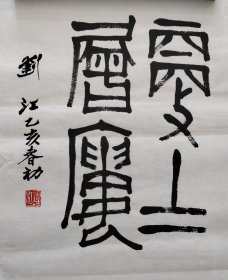 更上
層樓
劉江乙亥春初